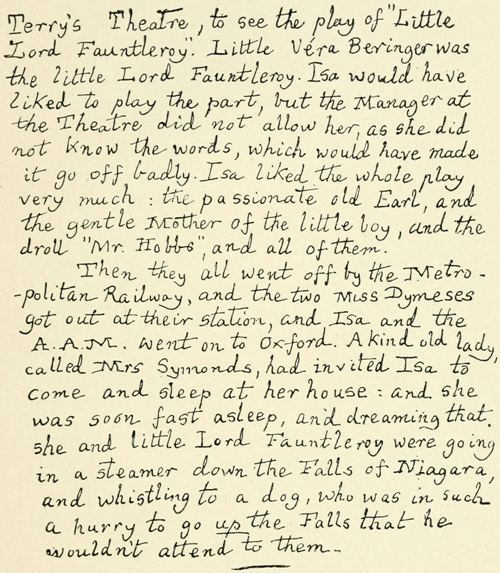 Terry's Theatre, to see the play of "Little
Lord Fauntleroy". Little Véra Beringer was
the little Lord Fauntleroy. Isa would have
liked to play the part, but the Manager at
the Theatre did not allow her, as she did
not know the words, which would have made
it go off badly. Isa liked the whole play
very much: the passionate old Earl, and
the gentle Mother of the little boy, and the
droll "Mr. Hobbs", and all of them.
Then they all went off by the Metro-
-politan Railway, and the two Miss Dymeses
got out at their station, and Isa and the
A.A.M. went on to Oxford. A kind old lady,
called Mrs Symonds, had invited Isa to
come and sleep at her house: and she
was soon fast asleep, and dreaming that
she and little Lord Fauntleroy were going
in a steamer down the Falls of Niagara,
and whistling to a dog, who was in such
a hurry to go up the Falls that he
wouldn't attend to them.